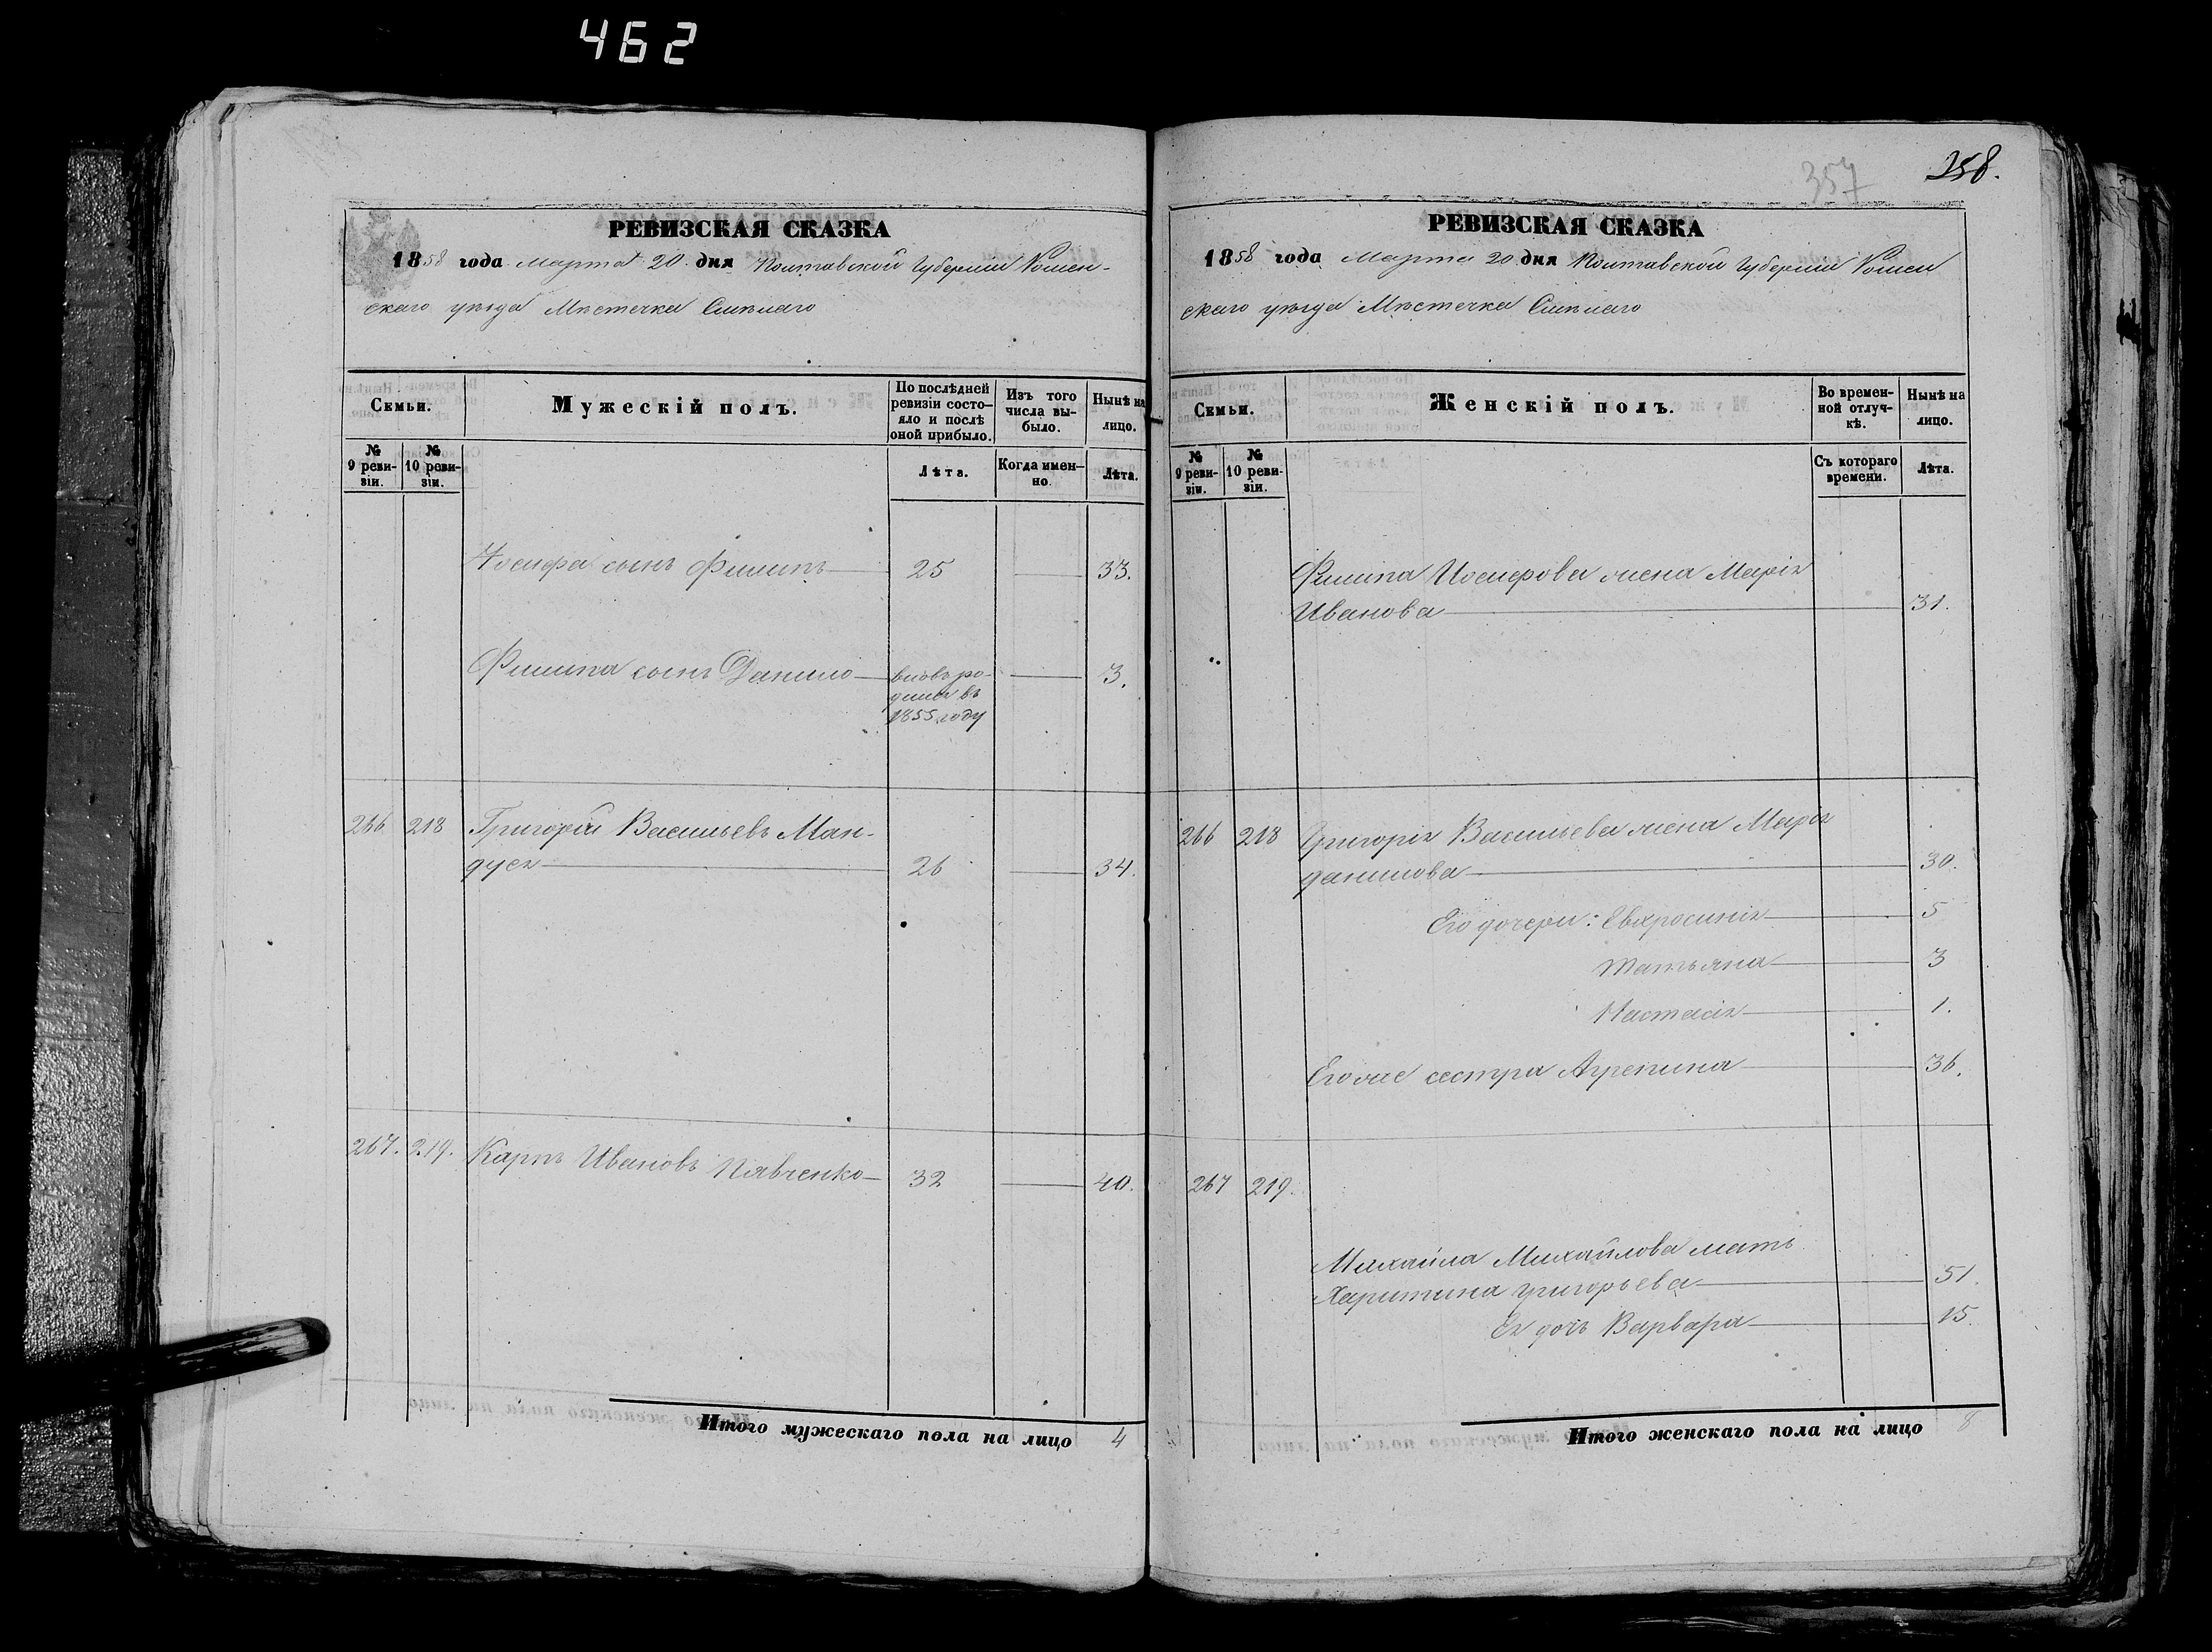 462
РЕВИЗСКАЯ СКАЗКА
1858 года Марта 20 дня Полтавской Губерніи Ромен-
скаго уѣзда Мѣстечка Смѣлаго
Семьи.
Мужескій полъ.
По послѣдней
ревизіи состо-
яло и послѣ
оной прибыло.
Изъ того
числа вы-
было.
Нынѣ на
лицо.
№
9 реви-
зіи.
№
10 реви-
зіи.
Лѣта.
Когда имен-
но.
Лѣта.
Іосифа сынъ Филипъ 25 33.
Филипа сынъ Данило вновь ро- 3.
дился въ
1855 году
266 218 Григорій Васильевъ Ман-
дуся 26 34.
267. 219. Карпъ Ивановъ 32 40.
Итого мужескаго пола на лицо 4
357
358.
РЕВИЗСКАЯ СКАЗКА
1858 года Марта 20 дня Полтавской Губерніи Ромен
скаго уѣзда Мѣстечка Смѣлаго
Семьи.
Женскій полъ.
Во времен-
ной отлуч-
кѣ.
Нынѣ на
лицо.
№
9 реви-
зіи.
№
10 реви-
зіи.
Съ котораго
времени.
Лѣта.
Филипа Иосифова жена Марія
Иванова 31.
266 218 Григорія Васильева жена Марія
Данилова 30.
Его дочери: Евфросинія 5
Татьяна 3
Настасія 1.
Его же сестра Агрепина 36.
267 219.
Михайла Михайлова мать
Харитина Григорьева 51.
Ея дочь Варвара 15.
Итого женскаго пола на лицо 8